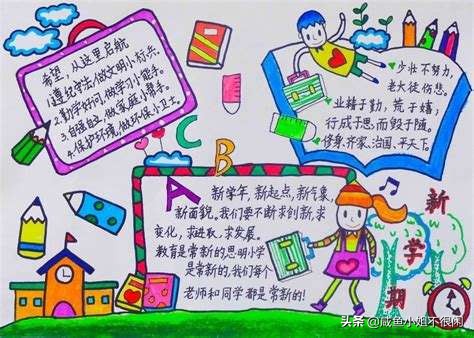 希望，从这里启航
1.遵纪守法，做文明小标兵。
2.勤学好问，做学习小能手。
3.自强自立，做家庭小帮手。
4.保护环境，做环保小卫士。
少壮不努力，
老大徒伤悲。
业精于勤，荒于嬉；
行成于思，而毁于随。
修身、齐家、治国、平天下。
A
B
C
新学年，新起点，新气象，
新面貌，我们要不断求创新，求
变化，求进取，求发展。
教育是常新的，思明小学
是常新的，我们每个
老师和同学都是常新的！
新学期
头条 @咸鱼小姐不很闲